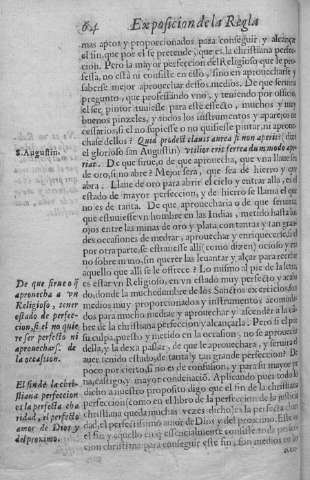 64 Exposicion de la Regla
mas aptos y proporcionados para conseguir y alcançar
el fin, que por el se pretende, que es la christiana perfec-
cion. Pero la mayor perfeccion del Religioso que le pro-
fessa, no está ni consiste en esso, sino en aprouecharse y
saberse mejor aprouechar dessos medios. De que siruera
pregunto, que professando vno, y teniendo por officio
el ser pintor tuuiesse para este effecto, muchos y muy
buenos pinzeles, y todos los instrumentos y aparejos ne
cessarios, si el no supiesse o no quisiesse pintar, ni aproue
charse dellos? Quid prodest clauis aurea si non aperit? dize
S. Augustin. el glorioso san Augustin) Vtilior erit ferrea dummodo ape-
riat. De que sirue, o de que aprouecha, que vna llaue sea
de oro, si no abre? Mejor sera, que sea de hierro y que
abra. Llaue de oro para abrir el cielo y entrar allá, es el
estado de mayor perfeccion, y de hierro se llama el que
no es de tanta. De que aprouecharia o de que seruiria
que estuuiesse vn hombre en las Indias, metido hasta los
ojos entre las minas de oro y plata con tantas y tan gran
des occasiones de medrar, aprouechar y enriquecerse, si
por otra parte, se estuuiesse alli (como dizen) ocioso y ma
no sobre mano, sin querer las leuantar, y alçar para recebir
aquello que alli se le offrece? Lo mismo al pie de la letra,
De que sirue o q̃ es estar vn Religioso, en vn estado muy perfecto y aca
aprouecha a vn do, donde la muchedumbre de los Sanctos exercicios son
Religioso, tener medios muy proporcionados y instrumentos acomoda-
estado de perfec- dos para mucho medrar y aprouechar y ascender a la cũ-
cion, si el no quie bre de la christiana perfeccion y alcançarla. Pero si el por
re ser perfecto ni su culpa, puesto y metido en la occasion, no se aprouecha
aprouecharse de della, y la dexa passar, de que le aprouechara, y seruira el
la occasion. auer tenido estado, de tanta y tan grande perfeccion? De
poco por cierto, si no es de confusion, y para su mayor pe
El fin de la chris- na, castigo, y mayor condenació. Applicando pues todo lo
tiana perfeccion dicho a nuestro proposito digo que el fin de la christiana
es la perfecta cha perfeccion (como en el libro de la perfeccion de la justicia
ridad, el perfecto christiana queda muchas vezes dicho) es la perfecta chari
amor de Dios y dad, el perfectissimo amor de Dios y del proximo. Este es
del proximo. el fin y aquello en q̃ essencialmente consiste toda la perfec
cion christiana para conseguir este fin, san medios en los